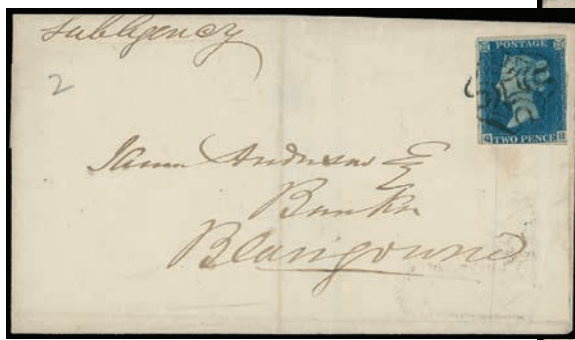 SubAgency
2
POSTAGE
TWO PENCE
James Anderson Esq
Banker
Blairgowrie